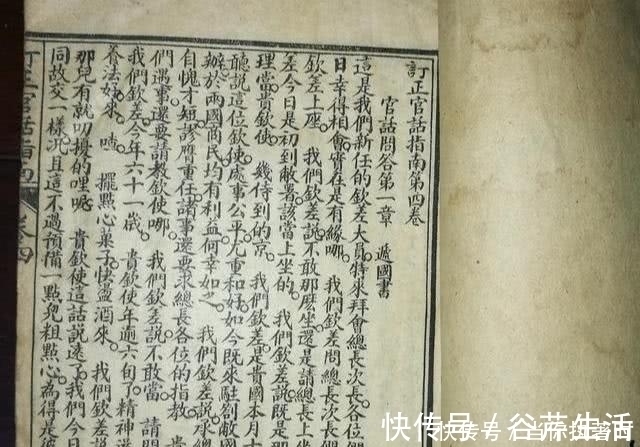 訂正官話指南第四卷
官話問答第一章 遞國書
這是我們新任的欽差大員特來拜會總長次長各位們
日幸得相會實在是有緣哪。我們欽差問總長次長們
欽差上座。我們欽差說不敢那麼坐還是請總長上坐
差今日是初到敝署該當上坐的。我們欽差說既是那
理當貴欽使 幾侍到的京。我們欽差是貴國本月十
聽說這位欽使處事公平尤重和好如今既來駐劄敝國
辦於兩國商民均有利益何幸如之。我們欽差說
自愧才短謬膺重任諸事還要求總長各位的指教
們遇事還要請教欽使哪。我們欽差說不敢當 請問
我們欽差今年六十一歲。貴欽使年逾六旬了精神
養法好來。嗻。擺點心菓子快盪酒來。我們欽差
那兒有就叨擾的哩呢 貴欽使這話說遠了我們今日
同故交一樣況且這不過預備一點兒粗點心為得是
訂正官話指南 卷四
快传号 / 谷芘生活